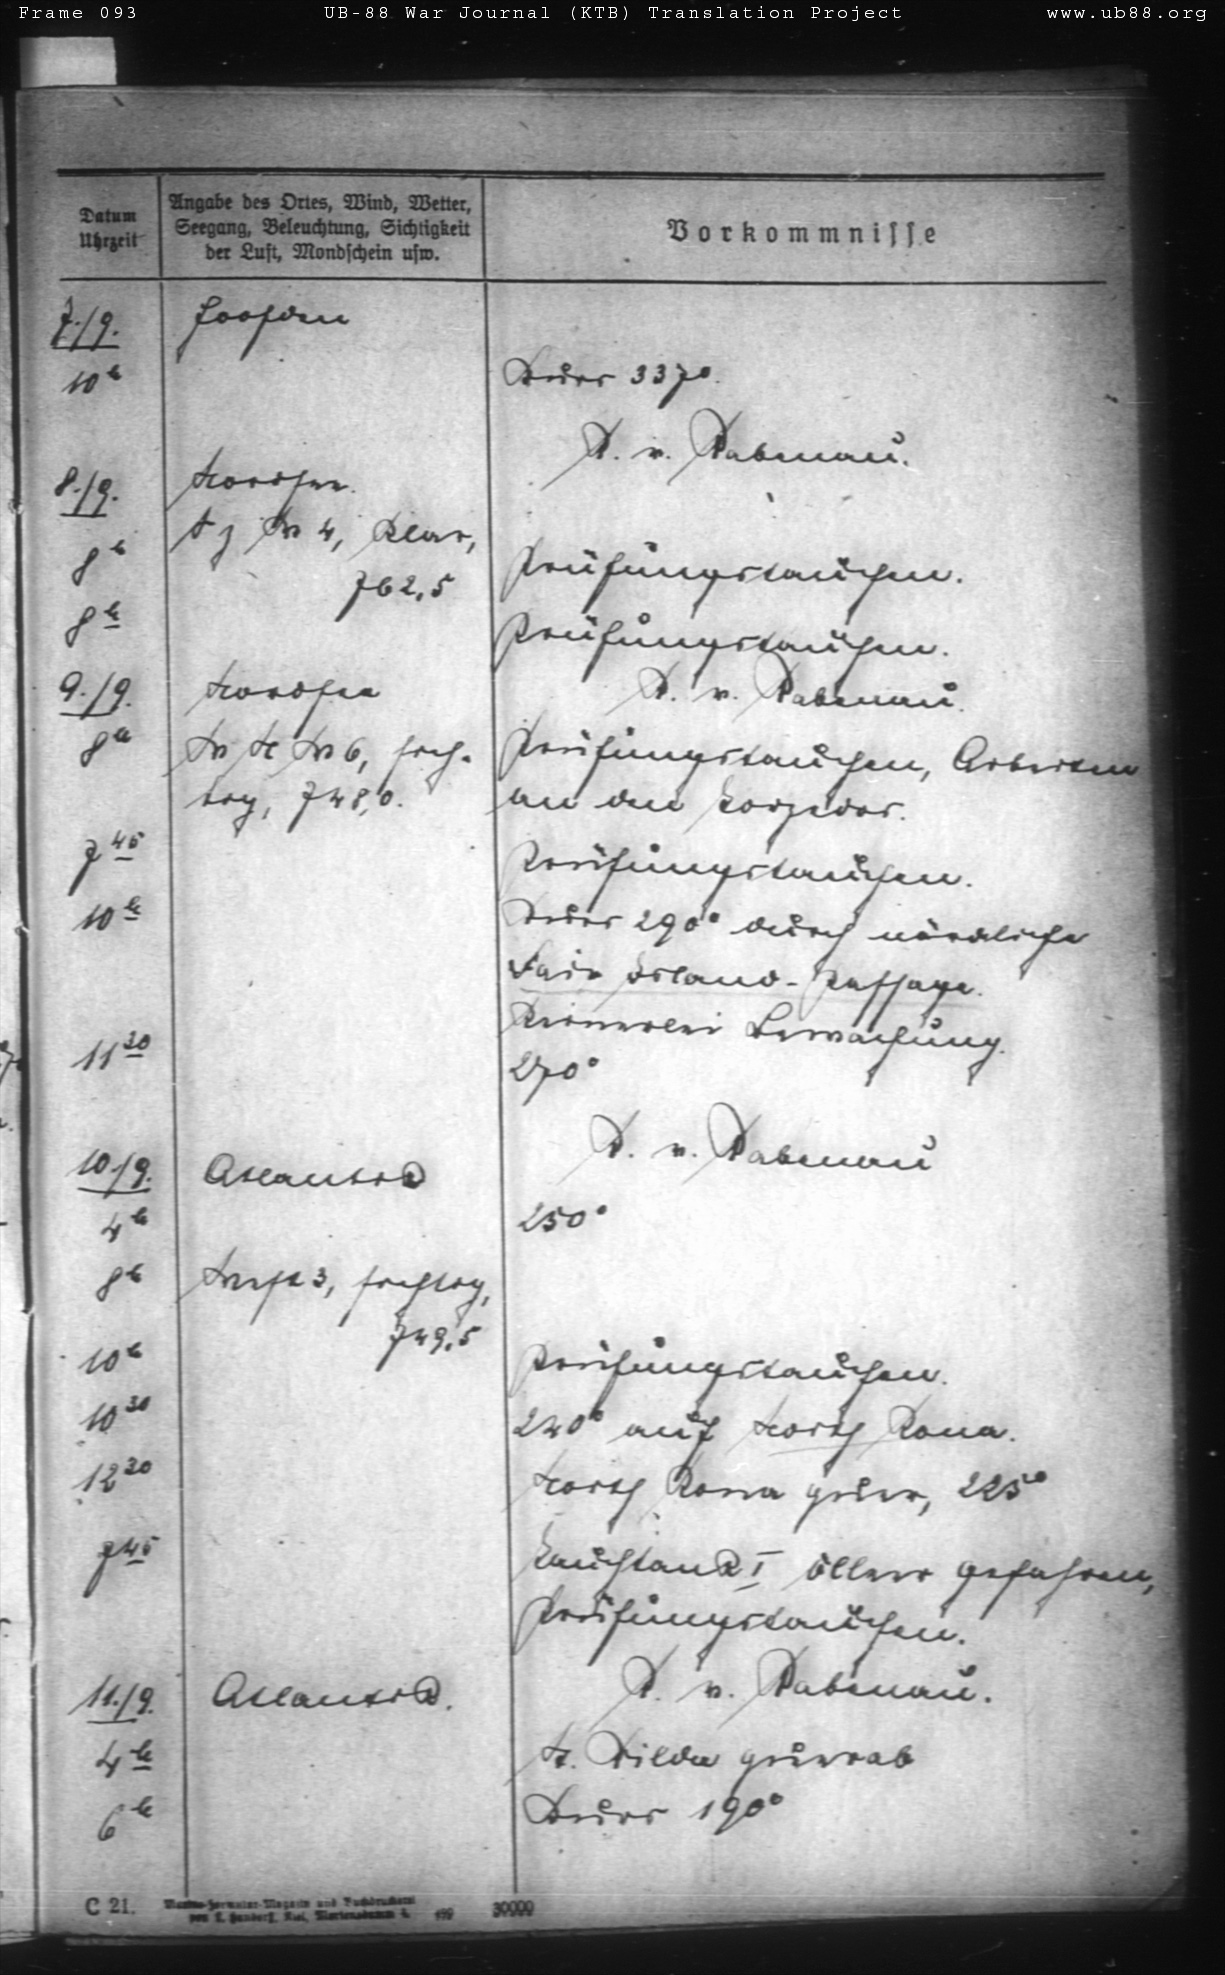 Frame 093 UB-88 War Journal (KTB) Translation Project www.ub88.org
Datum Uhrzeit
Angabe des Ortes, Wind, Wetter,
Seegang, Beleuchtung, Sichtigkeit
der Luft, Mondschein usw.
Vorkommnisse
7./9. Hoofden
10 h Kurs 337°.
R. v. Rabenau.
8./9. Nordsee.
8 h S z W 4, klar, Prüfungstauchen.
762,5
8 h Prüfungstauchen.
9./9. Nordsee R. v. Rabenau.
8 h W N W 6, sich- Prüfungstauchen, Arbeiten
tig, 748,0. an den Torpedos.
7 45 Prüfungstauchen.
10 h Kurs 290° durch nördliche
Fair Island-Passage.
Keinerlei Bewachung.
11 30 270°
R. v. Rabenau
10./9. Atlantik
4 h 250°
8 h West 3, sichtig,
749,5
10 h Prüfungstauchen.
10 30 240° auf North Rona.
12 30 North Rona quer, 225°
7 45 Tauchtank I Öl gefahren,
Prüfungstauchen.
R. v. Rabenau.
11./9. Atlantik.
4 h St. Kilda querab
6 h Kurs 190°
C 21. 30000